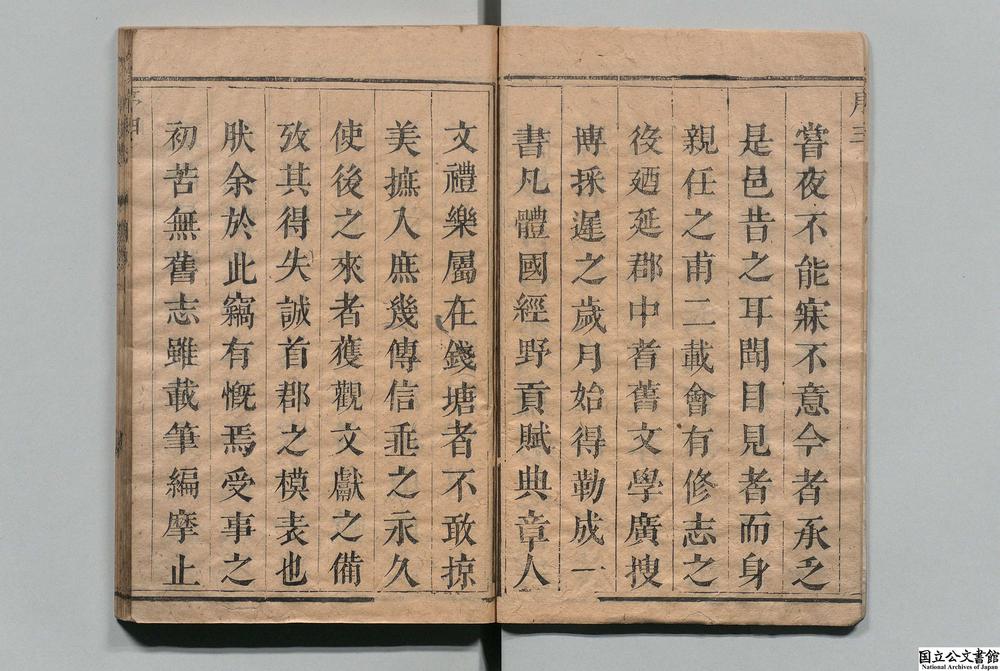 嘗夜不能寐不意今者承乏
是邑昔之耳聞目見者而身
親任之甫二載會有修志之
役廼延郡中耆舊文學廣搜
博採遲之歲月始得勒成一
書凡體國經野貢賦典章人
文禮樂屬在錢塘者不敢掠
美摭入庶幾傳信垂之永久
使後之來者獲觀文獻之備
攷其得失誠首郡之模表也
肰余於此竊有慨焉受事之
初苦無舊志雖載筆編摩止
国立公文書館
National Archives of Japan